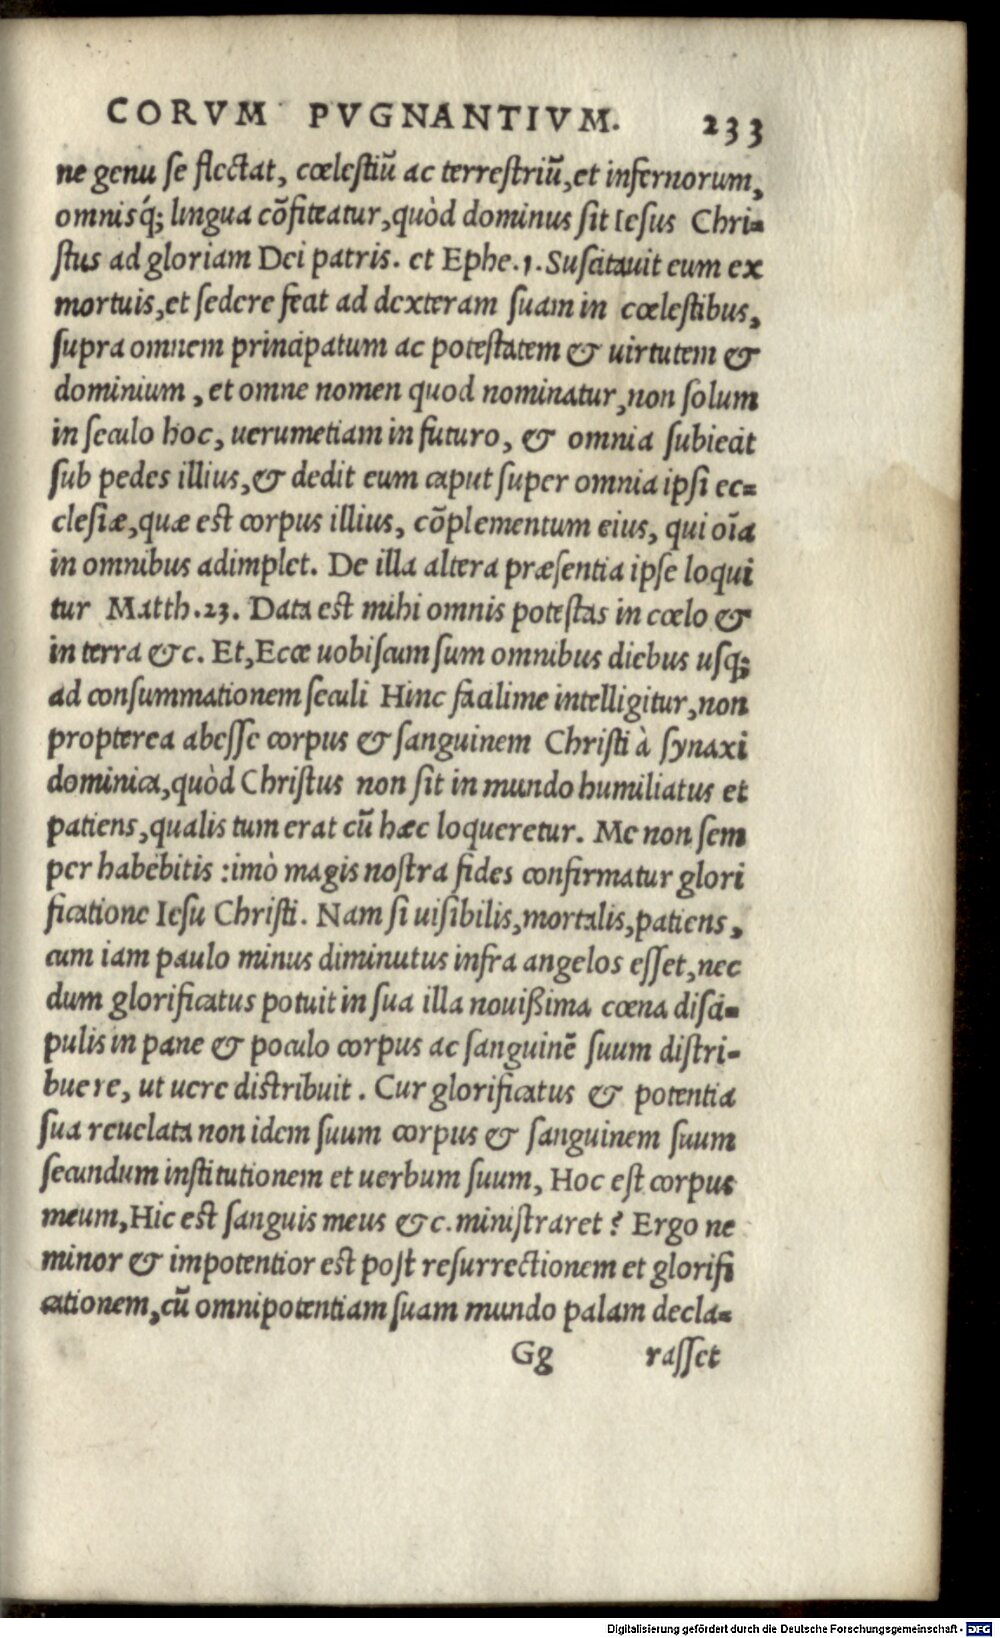 CORVM PVGNANTIVM. 233
ne genu se flectat, cœlestiũ ac terrestriũ, et infernorum,
omnisq́; lingua cõfiteatur, quòd dominus sit Iesus Chri-
stus ad gloriam Dei patris. et Ephe.1. Suscitauit eum ex
mortuis, et sedere fecit ad dexteram suam in cœlestibus,
supra omnem principatum ac potestatem & uirtutem &
dominium, et omne nomen quod nominatur, non solum
in seculo hoc, uerumetiam in futuro, & omnia subiecit
sub pedes illius, & dedit eum caput super omnia ipsi ec-
clesiæ, quæ est corpus illius, cõplementum eius, qui oĩa
in omnibus adimplet. De illa altera præsentia ipse loqui
tur Matth.23. Data est mihi omnis potestas in cœlo &
in terra &c. Et, Ecce uobiscum sum omnibus diebus usq;
ad consummationem seculi Hinc facilime intelligitur, non
propterea abesse corpus & sanguinem Christi à synaxi
dominica, quòd Christus non sit in mundo humiliatus et
patiens, qualis tum erat cũ hæc loqueretur. Me non sem
per habebitis: imò magis nostra fides confirmatur glori
ficatione Iesu Christi. Nam si uisibilis, mortalis, patiens,
cum iam paulo minus diminutus infra angelos esset, nec
dum glorificatus potuit in sua illa nouißima cœna disci-
pulis in pane & poculo corpus ac sanguinẽ suum distri-
buere, ut uere distribuit. Cur glorificatus & potentia
sua reuelata non idem suum corpus & sanguinem suum
secundum institutionem et uerbum suum, Hoc est corpus
meum, Hic est sanguis meus &c. ministraret? Ergo ne
minor & impotentior est post resurrectionem et glorifi
cationem, cũ omnipotentiam suam mundo palam decla-
Gg rasset
Digitalisierung gefördert durch die Deutsche Forschungsgemeinschaft - DFG